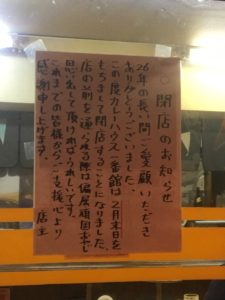 閉店のお知らせ
26年の長い間ご愛顧いただき
ありがとうございました。
この度カレーハウス一番館は2月末日を
もちまして閉店することになりました。
店の前を通られる際は偏屈頑固おやじ
思い出して頂ければうれしいです。
これまでの皆様からのご支援心より
感謝申し上げます。
店主